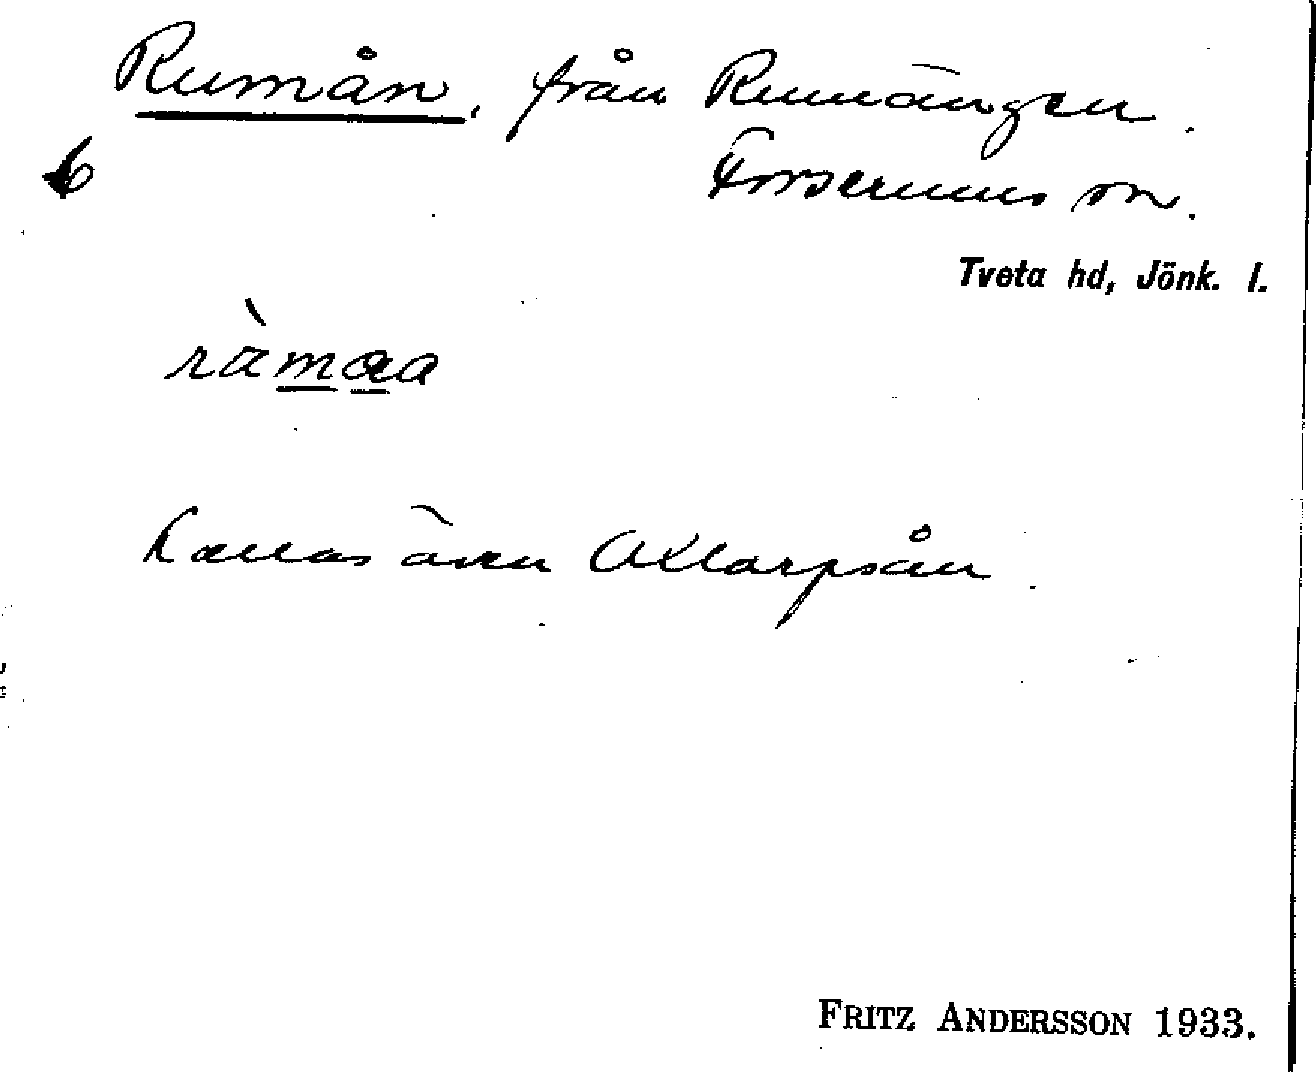 Rumån, från Rumängen.
Forserums sn.
Tveta hd, Jönk. l.
Kallas även Allarpsån
FRITZ ANDERSSON 1933.